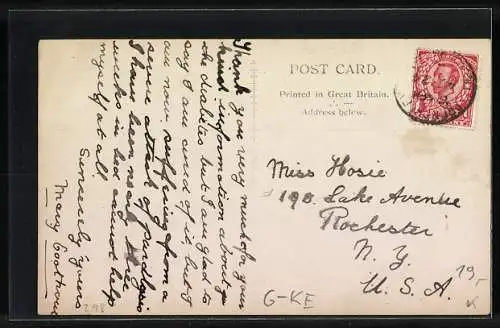 Thank you very much for your
kind information about
the diabetes but I am glad to
say I am cured of it, but I
am now suffering from a
severe attack of paralysis
I have been nearly three
weeks in bed cannot help
myself at all.
Sincerely yours
Mary
POST CARD.
Printed in Great Britain.
Address below.
Miss Hosie
198 Lake Avenue
Rochester
N. Y.
U. S. A.
G-KE
19,-
K
298